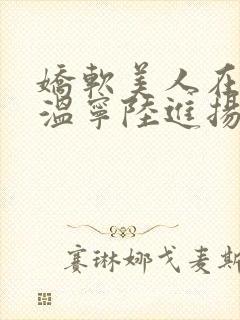 嬌軟美人在
溫寧陸進揚
賽琳娜戈麥斯